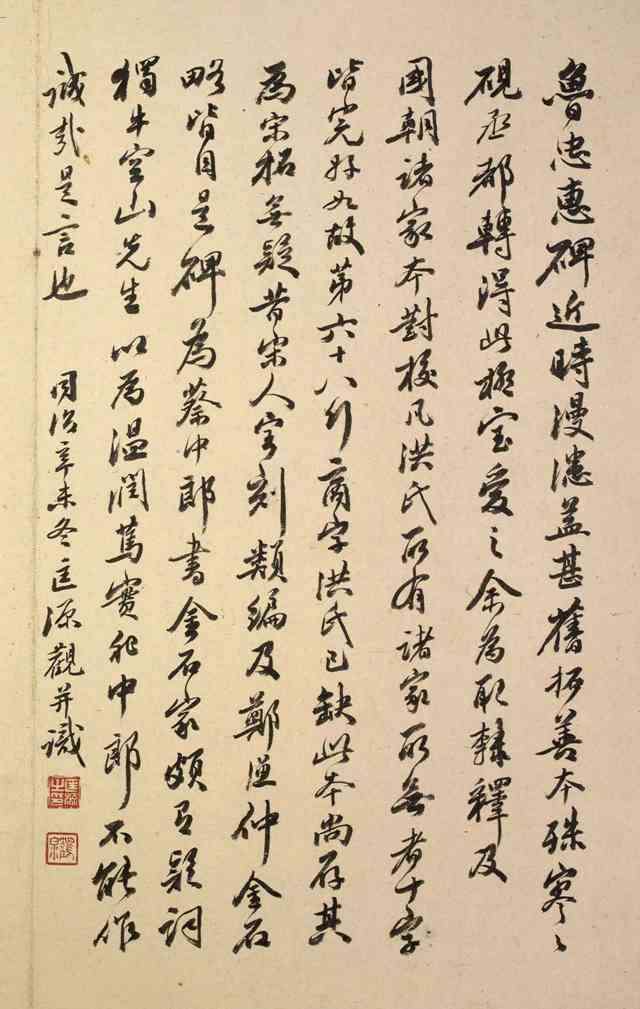 魯忠惠碑近時漫漶益甚舊拓善本殊寥々
硯丞都轉得此極寶愛之余為取隸釋及
國朝諸家本對校凡洪氏所有諸家所無者十字
皆完好如故第六十八行商字洪氏已缺此本尚存其
為宋拓無疑昔宋人寶刻類編及鄭漁仲金石
略皆目是碑為蔡中郎書金石家頗有疑詞
獨牛空山先生以為溫潤篤實非中郎不能作
誠哉是言也 同治辛未冬匡源觀并識